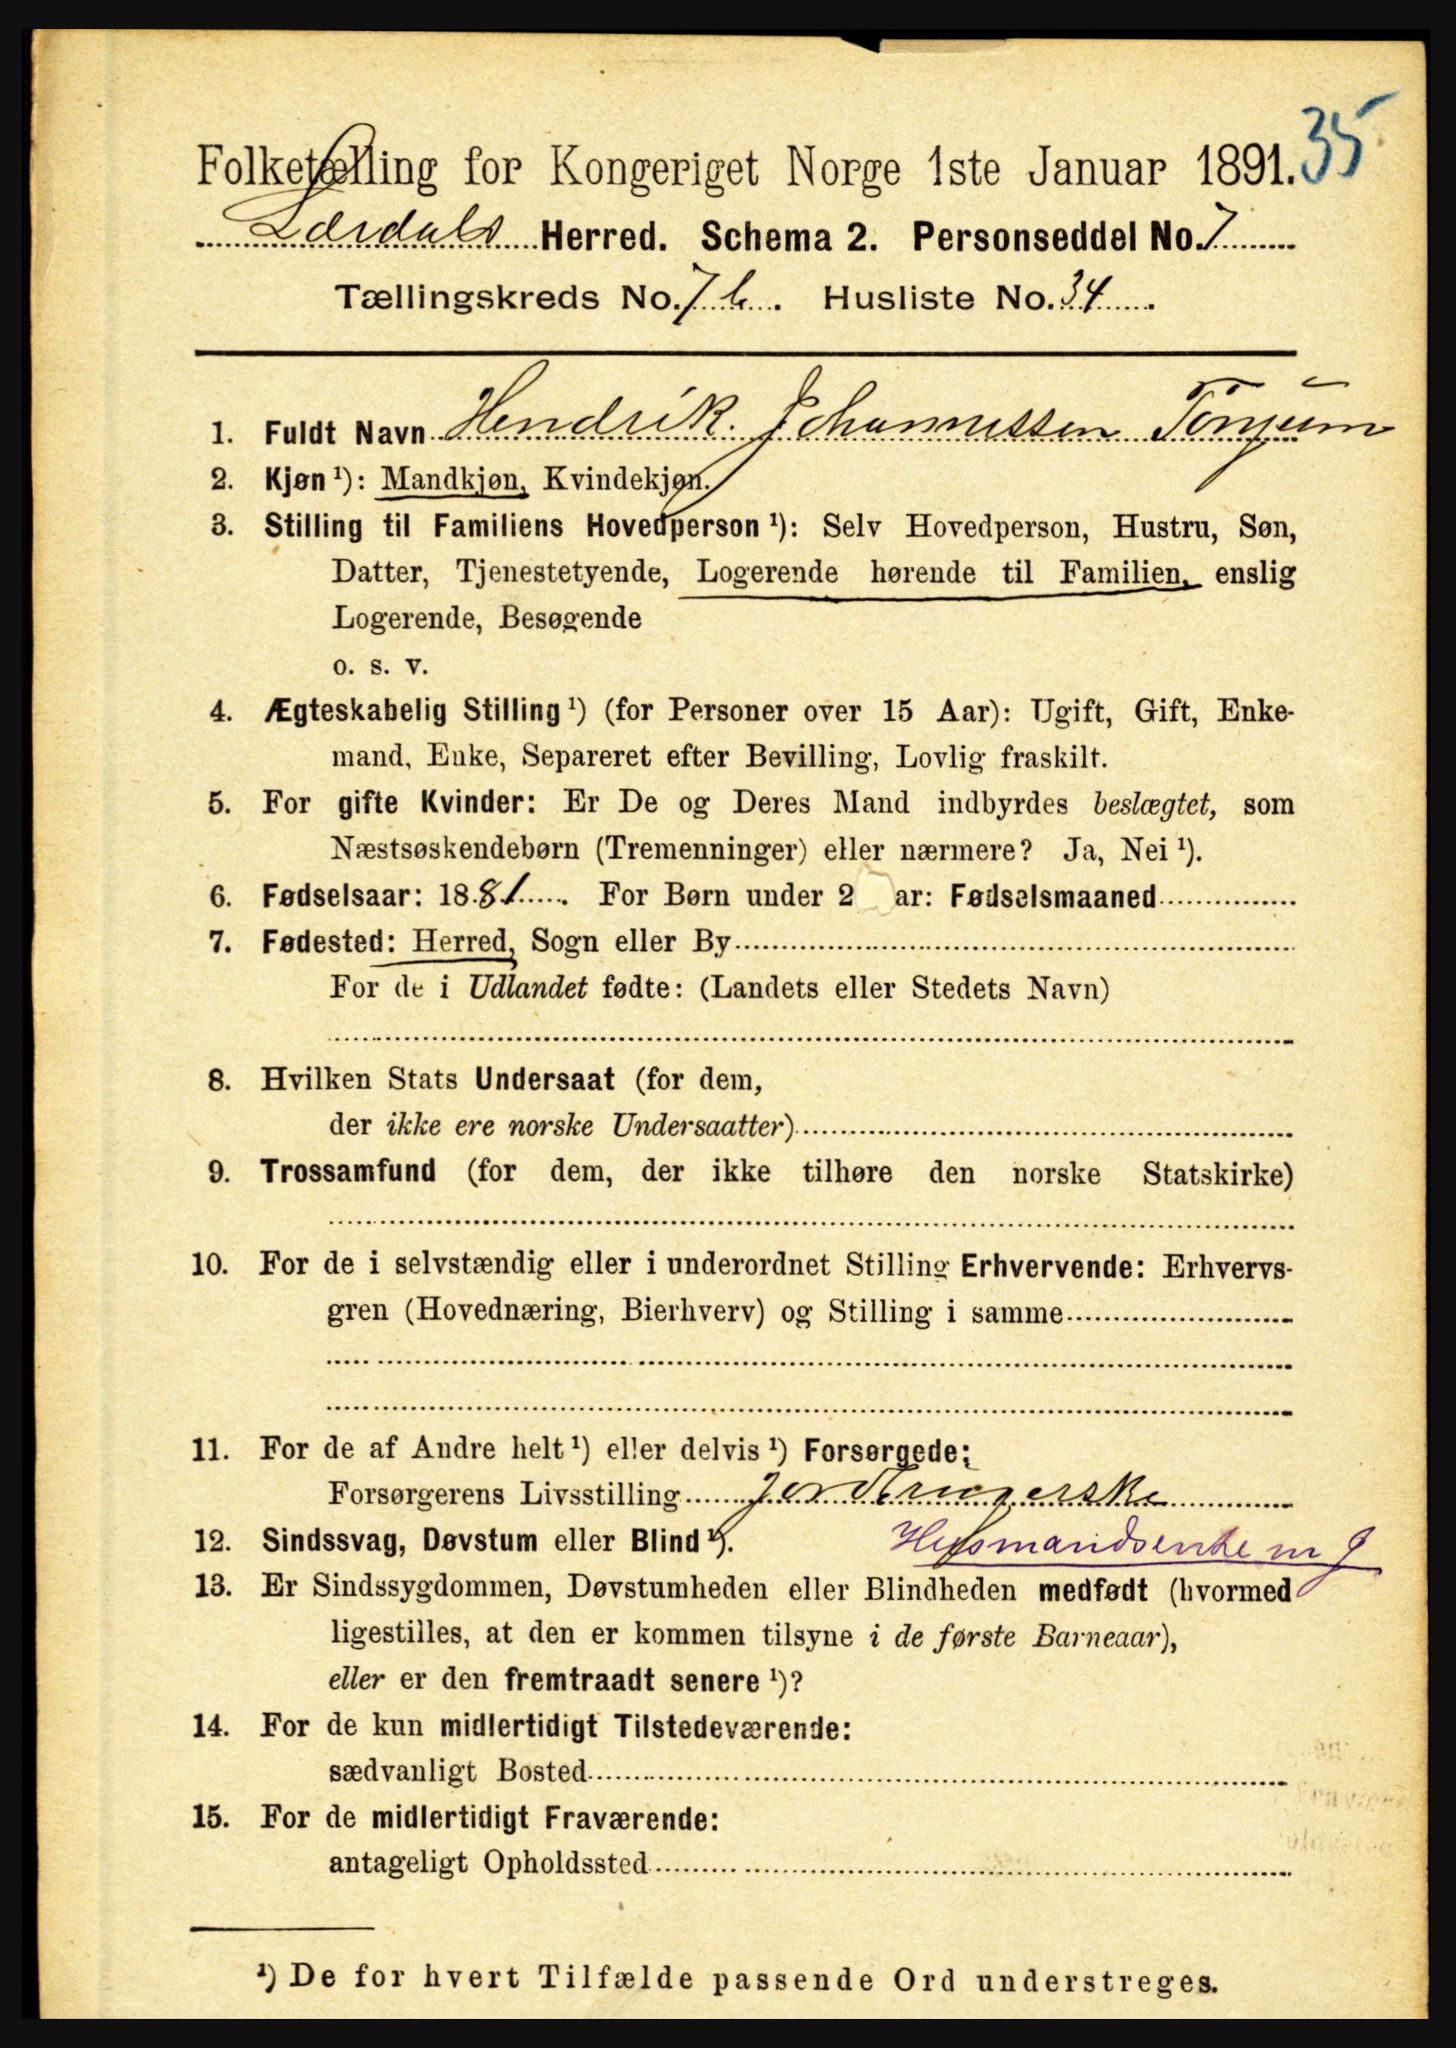 35
Folketælling for Kongeriget Norge 1ste Januar 1891.
Lærdals Herred. Schema 2. Personseddel No. 7
Tællingskreds No. 7 b. Husliste No. 34
1. Fuldt Navn Hendrik Johannessen Tönjum
2. Kjøn ¹): Mandkjøn, Kvindekjøn.
3. Stilling til Familiens Hovedperson ¹): Selv Hovedperson, Hustru, Søn,
Datter, Tjenestetyende, Logerende hørende til Familien, enslig
Logerende, Besøgende
o. s. v.
4. Ægteskabelig Stilling ¹) (for Personer over 15 Aar): Ugift, Gift, Enke-
mand, Enke, Separeret efter Bevilling, Lovlig fraskilt.
5. For gifte Kvinder: Er De og Deres Mand indbyrdes beslægtet, som
Næstsøskendebørn (Tremenninger) eller nærmere? Ja, Nei ¹).
6. Fødselsaar: 1881. For Børn under 2 ar: Fødselsmaaned
7. Fødested: Herred, Sogn eller By
For de i Udlandet fødte: (Landets eller Stedets Navn)
8. Hvilken Stats Undersaat (for dem,
der ikke ere norske Undersaatter)
9. Trossamfund (for dem, der ikke tilhøre den norske Statskirke)
10. For de i selvstændig eller i underordnet Stilling Erhvervende: Erhvervs-
gren (Hovednæring, Bierhverv) og Stilling i samme
11. For de af Andre helt ¹) eller delvis ¹) Forsørgede:
Forsørgerens Livsstilling Jordbrugerske
12. Sindssvag, Døvstum eller Blind ¹). Husmandsenke m J
13. Er Sindssygdommen, Døvstumheden eller Blindheden medfødt (hvormed
ligestilles, at den er kommen tilsyne i de første Barneaar),
eller er den fremtraadt senere ¹)?
14. For de kun midlertidigt Tilstedeværende:
sædvanligt Bosted
15. For de midlertidigt Fraværende:
antageligt Opholdssted
¹) De for hvert Tilfælde passende Ord understreges.